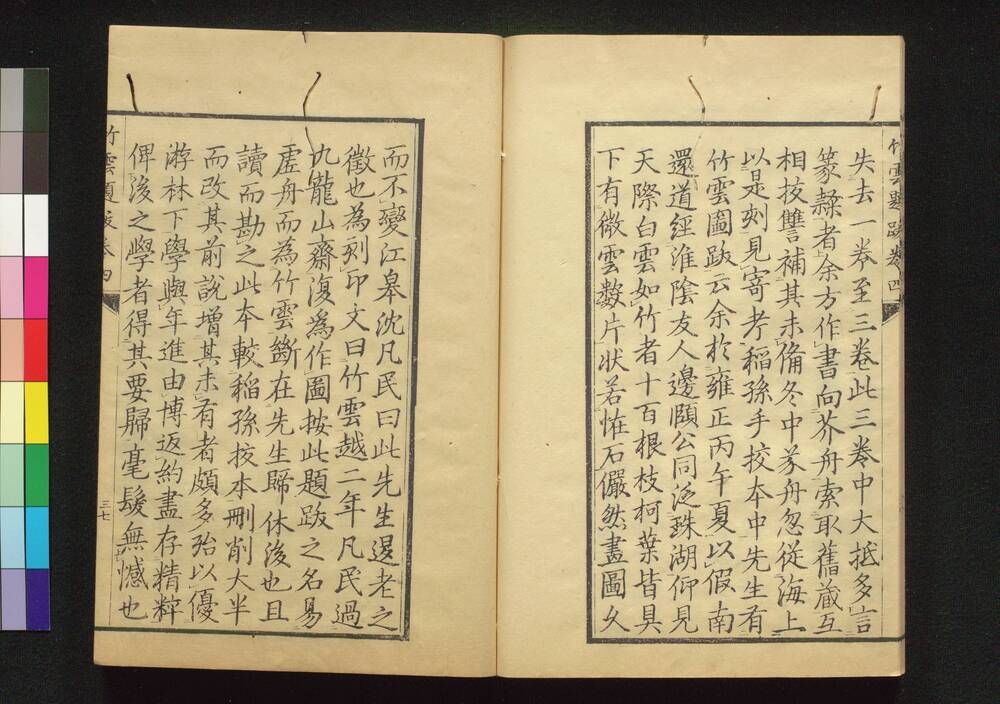 竹雲題跋卷四
失去一卷至三卷此三卷中大抵多言
篆隸者余方作書向芥舟索取舊藏互
相技讐補其未備冬中芥舟忽從海上
以是刻見寄考稻孫手挍本中先生有
竹雲圖跋云余於雍正丙午夏以假南
還道經淮陰友人邊頤公同泛珠湖仰見
天際白雲如竹者十百根枝柯葉皆具
下有微雲數片狀若恠石儼然畫圖久
而不變江皋沈凡民曰此先生退老之
徵也為刻印文曰竹雲越二年凡民過
九龍山齋復為作圖按此題跋之名易
虛舟而為竹雲斷在先生歸休後也且
讀而勘之此本較稻孫挍本刪削大半
而改其前說增其未有者頗多殆以優
游林下學與年進由博返約盡存精粹
俾後之學者得其要歸毫髮無憾也
竹雲題跋卷四
三七